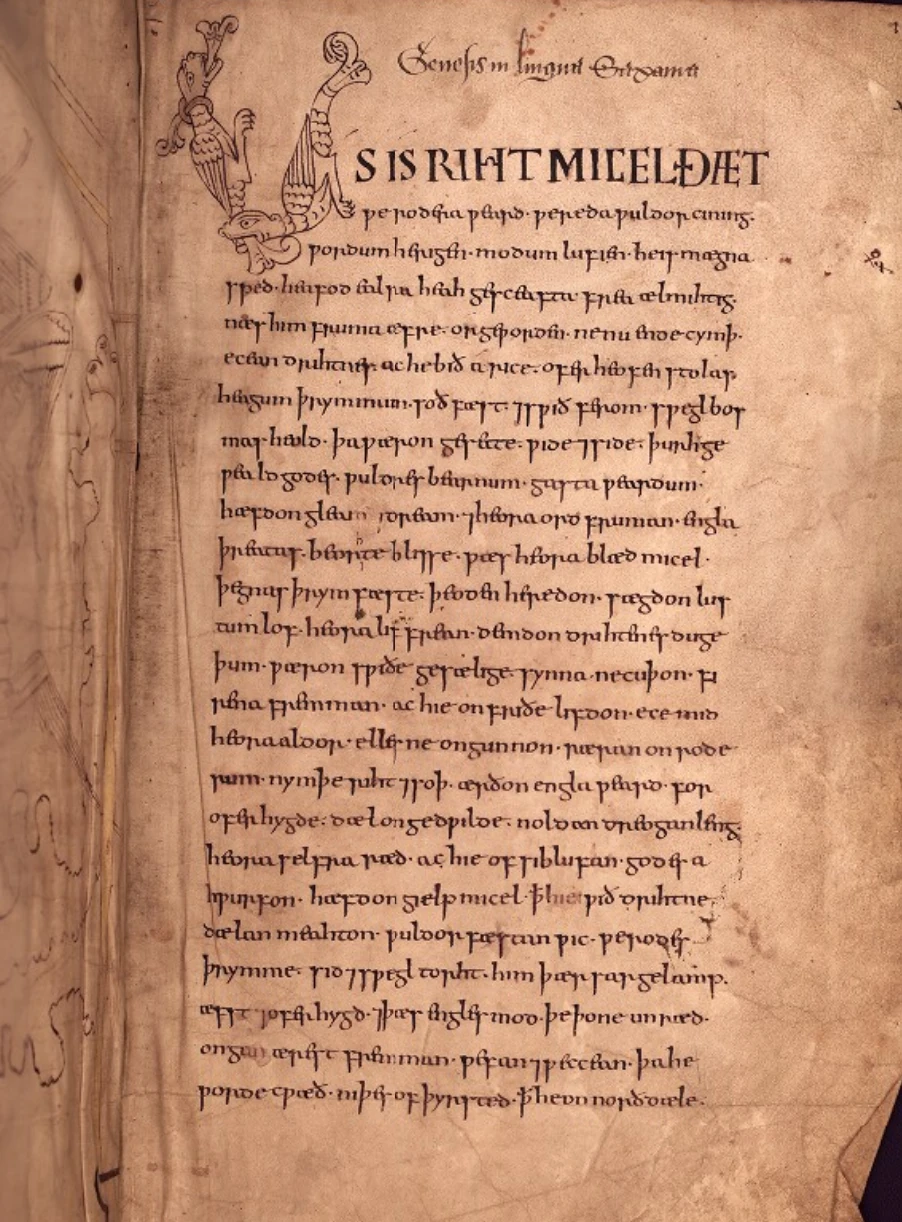 Genesis in lingua Saxania
US IS RIHT MICEL ÐÆT
ƿe rodera ƿeard· ƿereda ƿuldor cining·
ƿordum herigen· modum lufien· he is mægna
sped· heafod ealra heah gesceafta frea ælmihtig·
næs him fruma æfre· or geƿorden· ne nu ende cymþ·
ecean drihtnes· ac he bið a rice· ofer heofen stolas·
heagum þrymmum· soð fæst· ⁊ sƿið feorm· sƿegl bos
mas heold· þa ƿæron gesette· ƿide ⁊ side· þurh ge
ƿeald godes· ƿuldres bearnum· gasta ƿeardum·
hæfdon gleam ⁊ dream· ⁊ heora ord fruman· engla
þreatas· beorhte blisse· ƿæs heora blæd micel·
þegnas þrym fæste· þeoden heredon· sægdon lus
tum lof· heora lif frean· demdon drihtenes duge
þum· ƿæron sƿiðe gesælige· synna ne cuþon· fi
rena fremman· ac hie on friðe lifdon· ece mid
heora aldor· elles ne ongunnon· ræran on rode
rum· nymþe riht ⁊ soþ· ærðon engla ƿeard· for
oferhygde· dæl on gedƿilde· noldan dreogan leng·
heora selfra ræd· ac hie of siblufan· godes a
hƿurfon· hæfdon gielp micel· ꝥ hie ƿið drihtne·
dælan meahton· ƿuldor fæstan ƿic· ƿerodes
þrymme· sid ⁊ sƿegl torht· him þær sar gelamp·
æfst ⁊ oferhygd· ⁊ þæs engles mod· þe þone unræd·
ongan ærest fremman· ƿefan ⁊ ƿeccean· þa he
ƿorde cƿæð· niþes of þyrsted· ꝥ he on norð dæle·